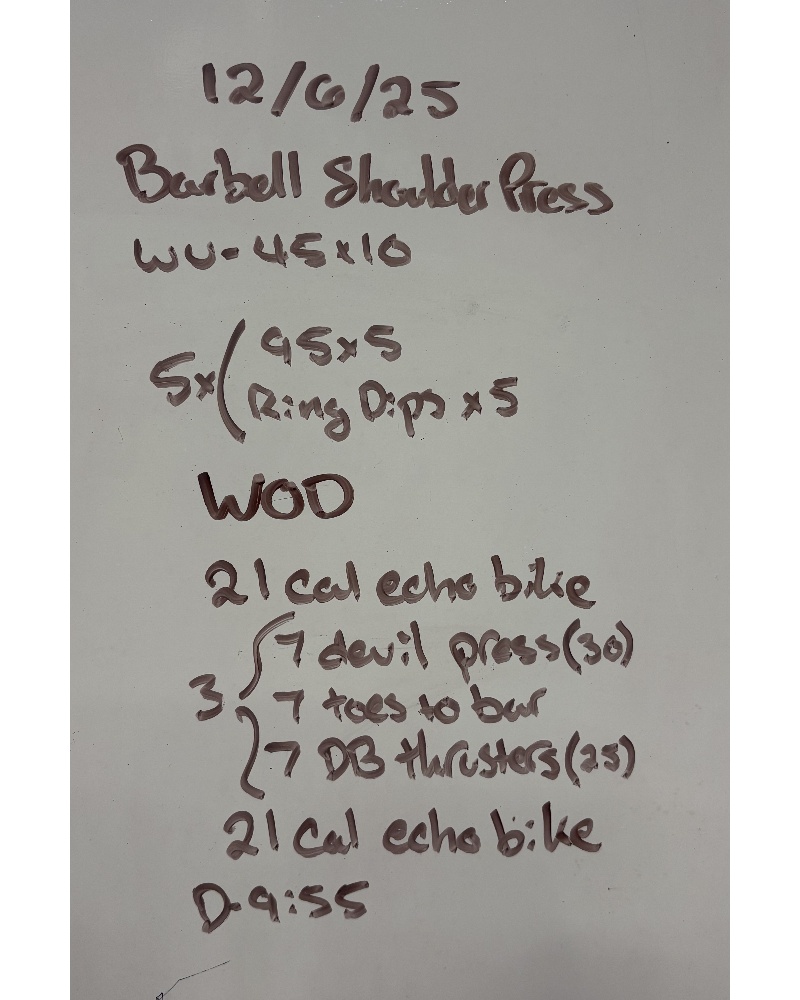 12/6/25
Barbell Shoulder Press
WU-45x10
95x5
5x
Ring Dips x5
WOD
21 cal echo bike
7 devil press (30)
3 7 toes to bar
7 DB thrusters (25)
21 Cal echo bike
D-9:55